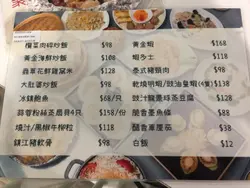 欖菜肉碎炒飯 $98
黃金海鮮炒飯 $98
蟲草花鮮雞窩米 $128
大肚婆炒飯 $98
冰鎮鮑魚 $68/只
蒜蓉粉絲蒸扇貝4只 $158/份
燒汁/黑椒牛柳粒 $118
鎮江豬軟骨 $98
黃金蝦 $168
蝦多士
泰式豬頸肉 $98
乾燒明蝦/豉油皇蝦(4隻) $138
豉汁龍躉球蒸豆腐 $128
醋香墨魚條 $88
醋香庫厘茄 $38
白飯 $12